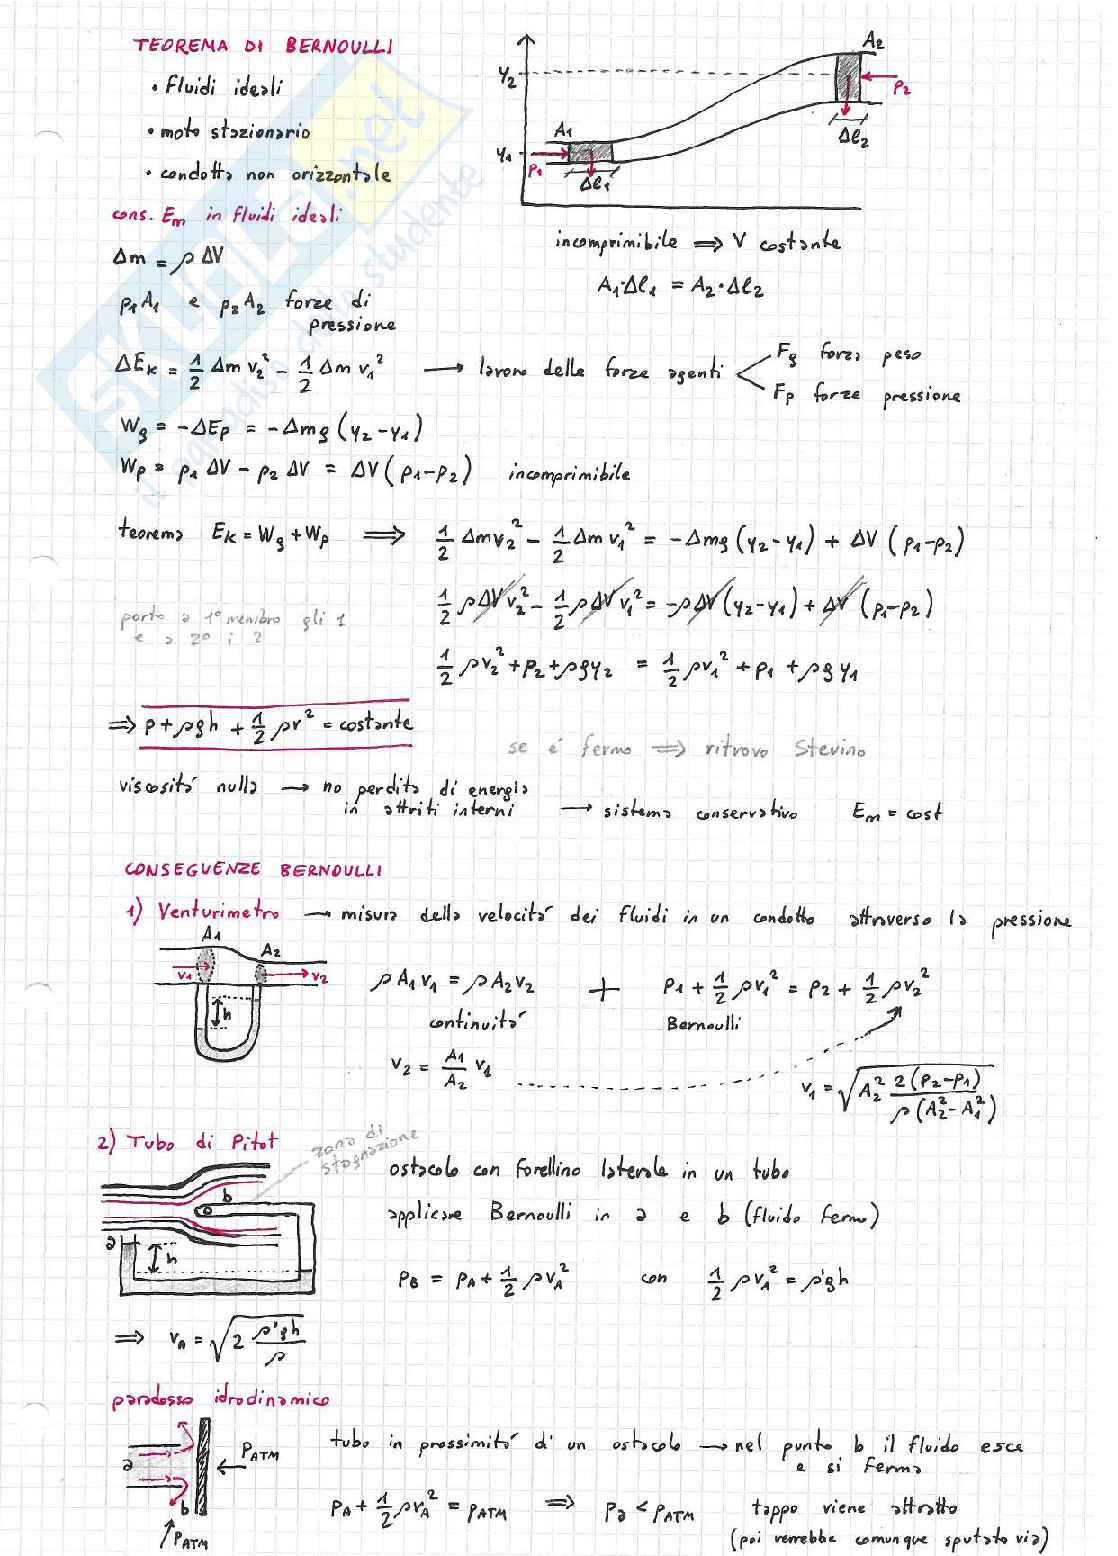 TEOREMA DI BERNOULLI
• fluidi ideali
• moto stazionario
• condotta non orizzontale
y2
y1
A1
A2
p1
p2
Δl1
Δl2
incomprimibile ⇒ V costante
A1·Δl1 = A2·Δl2
cons. Em in fluidi ideali
Δm = ρ ΔV
p1A1 e p2A2 forze di
pressione
ΔEk = 1/2 Δm v2² - 1/2 Δm v1² → lavoro delle forze agenti
Fg forza peso
Fp forze pressione
Wg = -ΔEp = -Δmg (y2-y1)
Wp = p1 ΔV - p2 ΔV = ΔV (p1-p2) incomprimibile
teorema Ek = Wg + Wp ⇒ 1/2 Δmv2² - 1/2 Δm v1² = -Δmg (y2-y1) + ΔV (p1-p2)
1/2 ρΔV v2² - 1/2 ρΔV v1² = -ρΔV (y2-y1) + ΔV (p1-p2)
porto a 1° membro gli 1
e a 2° i 2
1/2 ρv2² + p2 + ρgy2 = 1/2 ρv1² + p1 + ρg y1
⇒ p + ρgh + 1/2 ρv² = costante
se é fermo ⇒ ritrovo Stevino
viscositá nulla → no perdita di energia
in attriti interni → sistema conservativo Em = cost
CONSEGUENZE BERNOULLI
1) Venturimetro → misura della velocitá dei fluidi in un condotto attraverso la pressione
A1
A2
v1
v2
h
ρA1v1 = ρA2v2 + p1 + 1/2 ρv1² = p2 + 1/2 ρv2²
continuitá Bernoulli
v2 = A1/A2 v1
v1 = √(A2² 2(p2-p1)/ρ(A2²-A1²))
2) Tubo di Pitot
zona di
stagnazione
b
a
h
ostacolo con forellino laterale in un tubo
applicare Bernoulli in a e b (fluido fermo)
pB = pA + 1/2 ρvA² con 1/2 ρvA² = ρ'gh
⇒ vA = √(2 ρ'gh/ρ)
paradosso idrodinamico
a
b
PATM
PATM
tubo in prossimitá di un ostacolo → nel punto b il fluido esce
e si ferma
pA + 1/2 ρvA² = pATM ⇒ pa < pATM tappo viene attratto
(poi verrebbe comunque sputato via)
SKUOLA.net
il paradiso dello studente